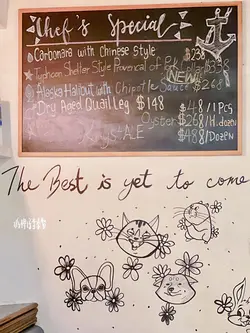 Chef's Special
Carbonara with Chinese style $238
Typhoon Shelter Style Provencal of $338
NEW
Alaska Halibut with Chipotle Sauce $268
Dry Aged Quail leg $148
$48/1PCS
Oyster $268/H.dozen
$48/Dozen
The Best is yet to come